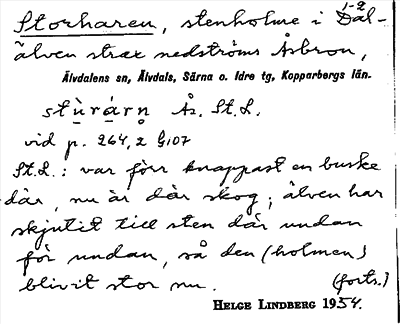 Storharen, stenholme i Dal-
1-2
älven strax nedströms Åsbron,
Älvdalens sn, Älvdals, Särna o. Idre tg, Kopparbergs län.
stùrárn̥ Ås. St.L.
vid p. 264,2 G107
St.L.: var förr knappast en buske
där, nu är där skog; älven har
skjutit till sten där undan
för undan, så den (holmen)
blivit stor nu. (forts.)
HELGE LINDBERG 1954.